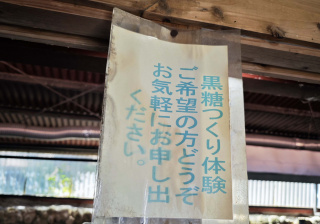 黒糖つくり体験
ご希望の方どうぞ
お気軽にお申し出
ください。